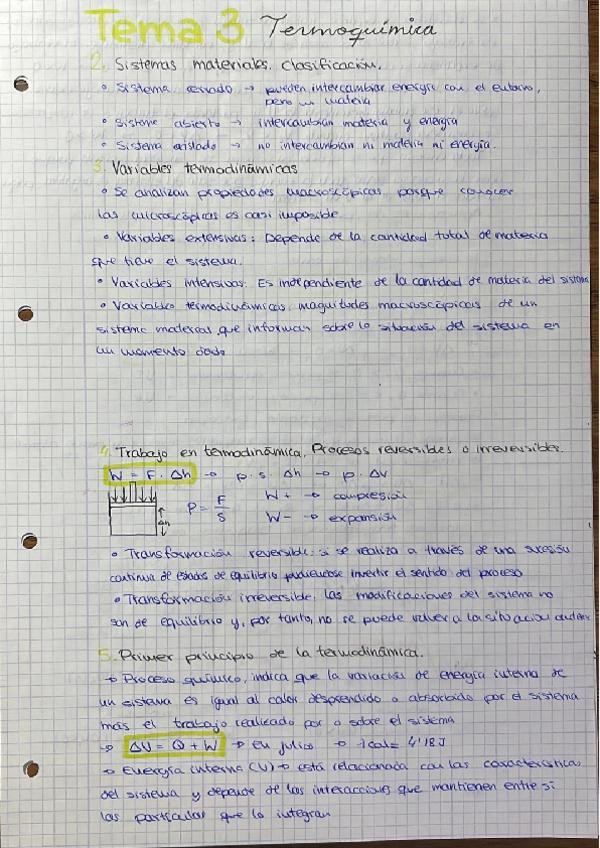 Tema 3 Termoquímica
2. Sistemas materiales. clasificación.
• Sistema cerrado → pueden intercambiar energía con el entorno,
pero no materia
• Sistema abierto → intercambian materia y energía
• Sistema aislado → no intercambian ni materia ni energía.
3. Variables termodinámicas
• Se analizan propiedades macroscópicas porque conocer
las microscópicas es casi imposible
• Variables extensivas: Depende de la cantidad total de materia
que tiene el sistema.
• Variables intensivas: Es independiente de la cantidad de materia del sistema
• Variables termodinámicas: magnitudes macroscópicas de un
sistema material que informan sobre la situación del sistema en
un momento dado
4. Trabajo en termodinámica. Procesos reversibles o irreversibles.
W = F · Δh → p · s · Δh → p · ΔV
P = F/S W+ → compresión
Δh W- → expansión
• Transformación reversible: si se realiza a través de una sucesión
continua de estados de equilibrio pudiéndose invertir el sentido del proceso
• Transformación irreversible, las modificaciones del sistema no
son de equilibrio y, por tanto, no se puede volver a la situación
5. Primer principio de la termodinámica.
→ Proceso químico, indica que la variación de energía interna de
un sistema es igual al calor desprendido o absorbido por el sistema
más el trabajo realizado por o sobre el sistema
→ ΔU = Q + W → en julio → 1cal = 4'18J
→ Energía interna (U) → está relacionada con las característica
del sistema y depende de las interacciones que mantienen entre si
las particular que lo integran